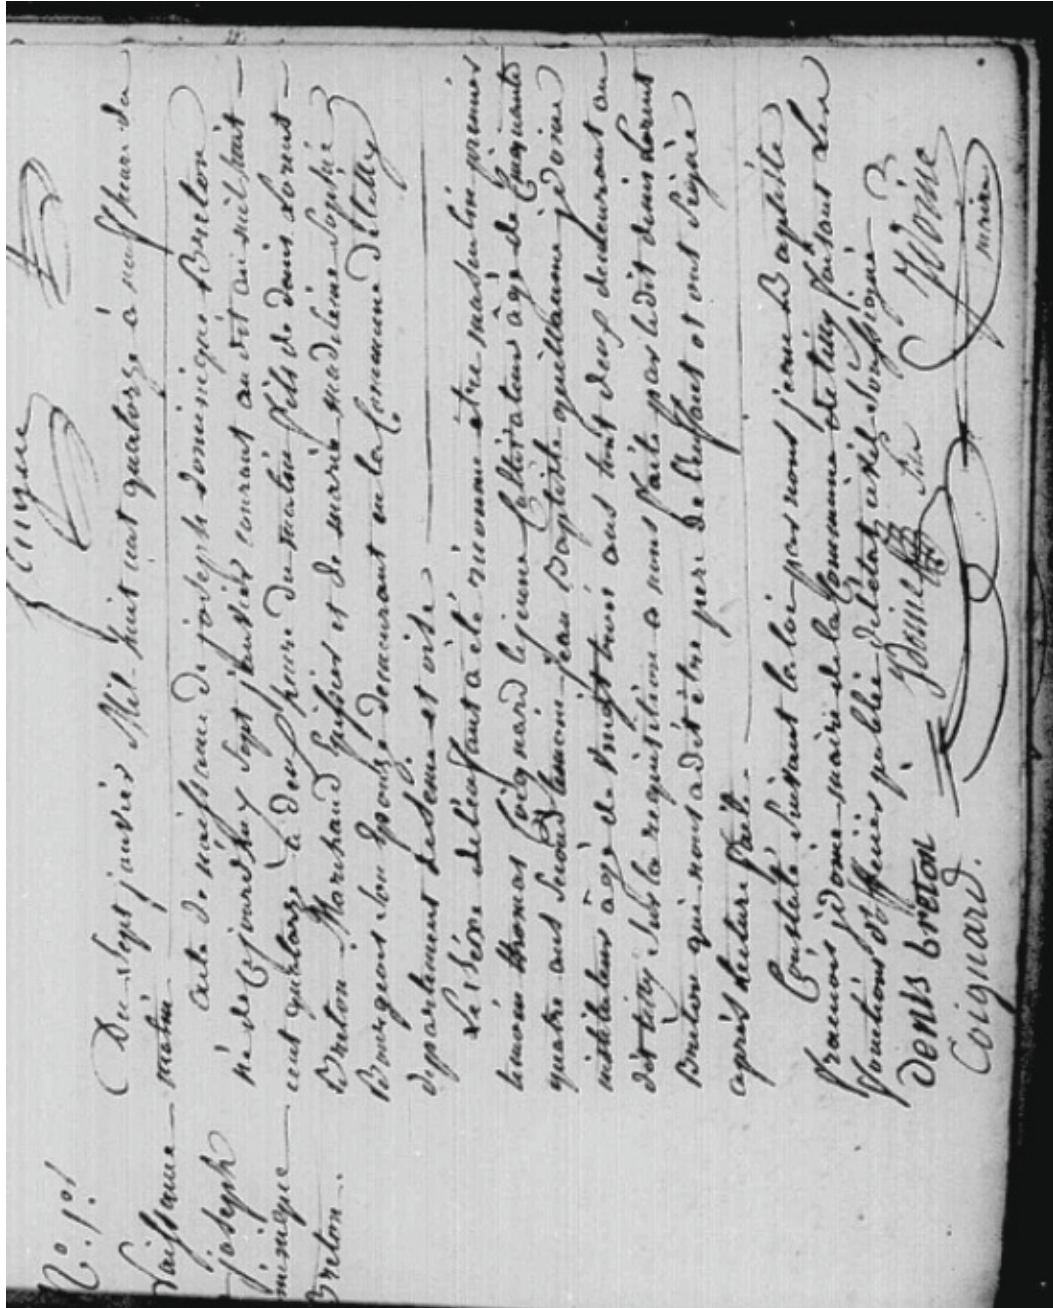 N.° 1.er
Naissance
joseph
Dominique
Breton.
Du sept janvier Mil-huit cent quatorze à neuf heures du
matin
acte de naissance de joseph dominique Breton
né de Cejourd'huy sept janvier courant au dit an mil huit
cent quatorze à deux heures du matin fils de denis Lorent
Breton Marchand Epicier et de marie madeleine Sophie
Bourgeois son Epouze demeurant en la Commune de tilly
département de seine et oise
Le sèxe de l'enfant à été réconnu être masculin premier
témoin thomas Coignard le jeune Cultivateur âgé de Cinquante
quatre ans Second témoin jean Baptiste guillaume jdoine
instituteur âgé de vingt trois ans tout deux demeurant au
dit tilly sur la requisition a nous faite par le dit denis Lorent
Breton qui nous a dit être pere de l'enfant et ont signé
après lecture faite.
Constaté Suivant la loi par nous jean Baptiste
françois jdoine maire de la Commune de tilly faisant Les
fonctions d'officier public de l'état civil Soussigné
Denis breton jdoine fils JDoine
Coignard. maire